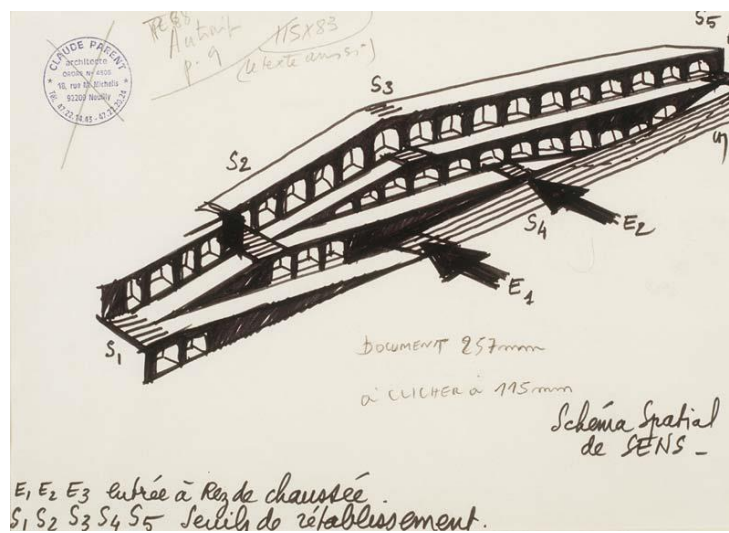 S5
CLAUDE PARENT
architecte
ORDRE N° 4800
92200 Neuilly
Tél. 47.22.14.43 - 47.22.20.24
p. 9
115 X 83
(le texte aussi)
S3
S2
S4
E2
E1
S1
DOCUMENT 257mm
à CLICHER à 115mm
Schéma Spatial
de SENS -
E1 E2 E3 entrée à Rez de chaussée.
S1 S2 S3 S4 S5 Seuils de rétablissement.